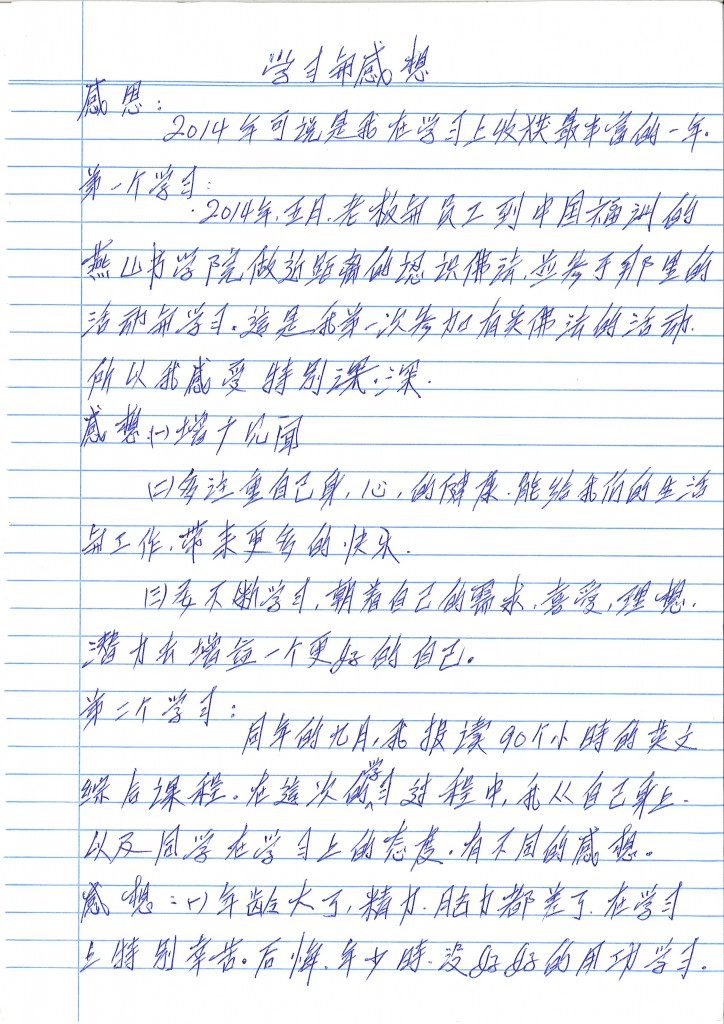 学习与感想
感思：
2014年可说是我在学习上收获最丰富的一年.
第一个学习：
2014年.五月.老板与员工到中国福洲的
燕山书学院做近距离的认识佛法,並参于那里的
活动与学习.這是我第一次参加有关佛法的活动.
所以我感受特别深.深.
感想(一)增广见闻
(二)多注重自己身,心,的健康.能给我们的生活
与工作,带来更多的快乐.
(三)要不断学习,朝着自己的需求,喜爱,理想.
潜力去增益一个更好的自己。
第二个学习：
同年的九月,我报读90个小時的英文
综合课程。在這次的学习过程中,我从自己身上.
以及同学在学习上的态度.有不同的感想。
感想=(一)年龄大了,精力.脑力都差了.在学习
上特别辛苦。后悔.年少時.没好好的用功学习.